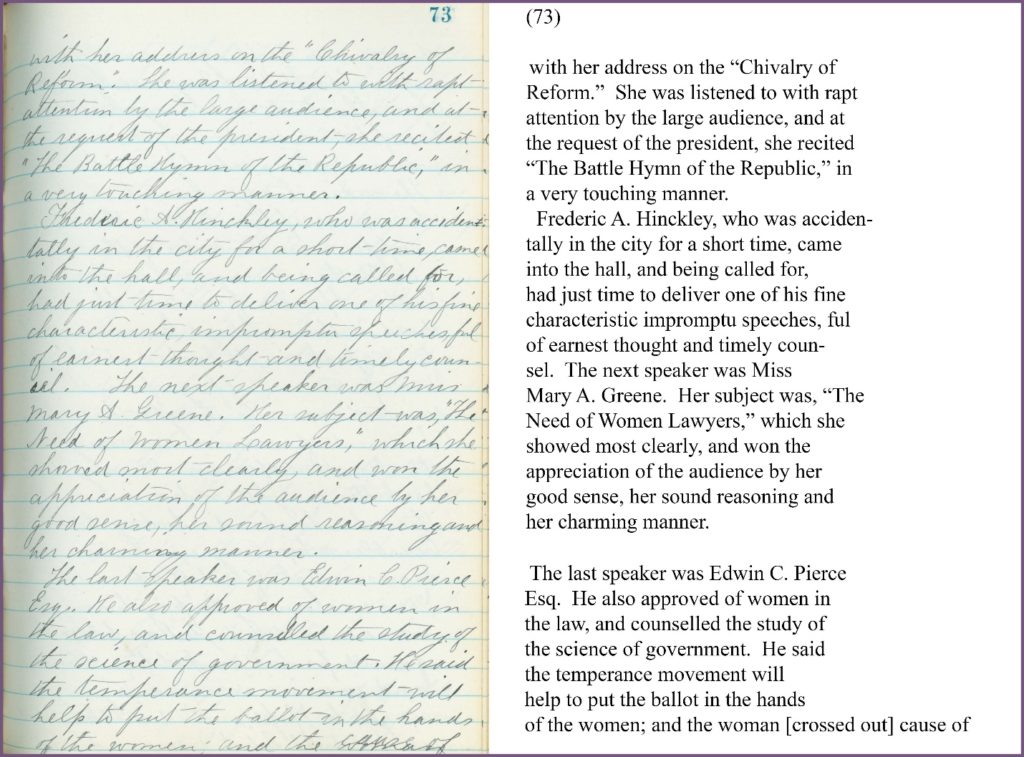 73
with her address on the "Chivalry of
Reform." She was listened to with rapt
attention by the large audience, and at
the request of the president, she recited
"The Battle Hymn of the Republic," in
a very touching manner.
Frederic A. Hinckley, who was acciden-
tally in the city for a short time, came
into the hall, and being called for,
had just time to deliver one of his fine
characteristic impromptu speeches, ful
of earnest thought and timely coun-
sel. The next speaker was Miss
Mary A. Greene. Her subject was, "The
Need of Women Lawyers," which she
showed most clearly, and won the
appreciation of the audience by her
good sense, her sound reasoning and
her charming manner.
The last speaker was Edwin C. Pierce
Esq. He also approved of women in
the law, and counselled the study of
the science of government. He said
the temperance movement will
help to put the ballot in the hands
of the women; and the cause of
(73)
with her address on the “Chivalry of
Reform.” She was listened to with rapt
attention by the large audience, and at
the request of the president, she recited
“The Battle Hymn of the Republic,” in
a very touching manner.
Frederic A. Hinckley, who was acciden-
tally in the city for a short time, came
into the hall, and being called for,
had just time to deliver one of his fine
characteristic impromptu speeches, ful
of earnest thought and timely coun-
sel. The next speaker was Miss
Mary A. Greene. Her subject was, “The
Need of Women Lawyers,” which she
showed most clearly, and won the
appreciation of the audience by her
good sense, her sound reasoning and
her charming manner.
The last speaker was Edwin C. Pierce
Esq. He also approved of women in
the law, and counselled the study of
the science of government. He said
the temperance movement will
help to put the ballot in the hands
of the women; and the woman [crossed out] cause of